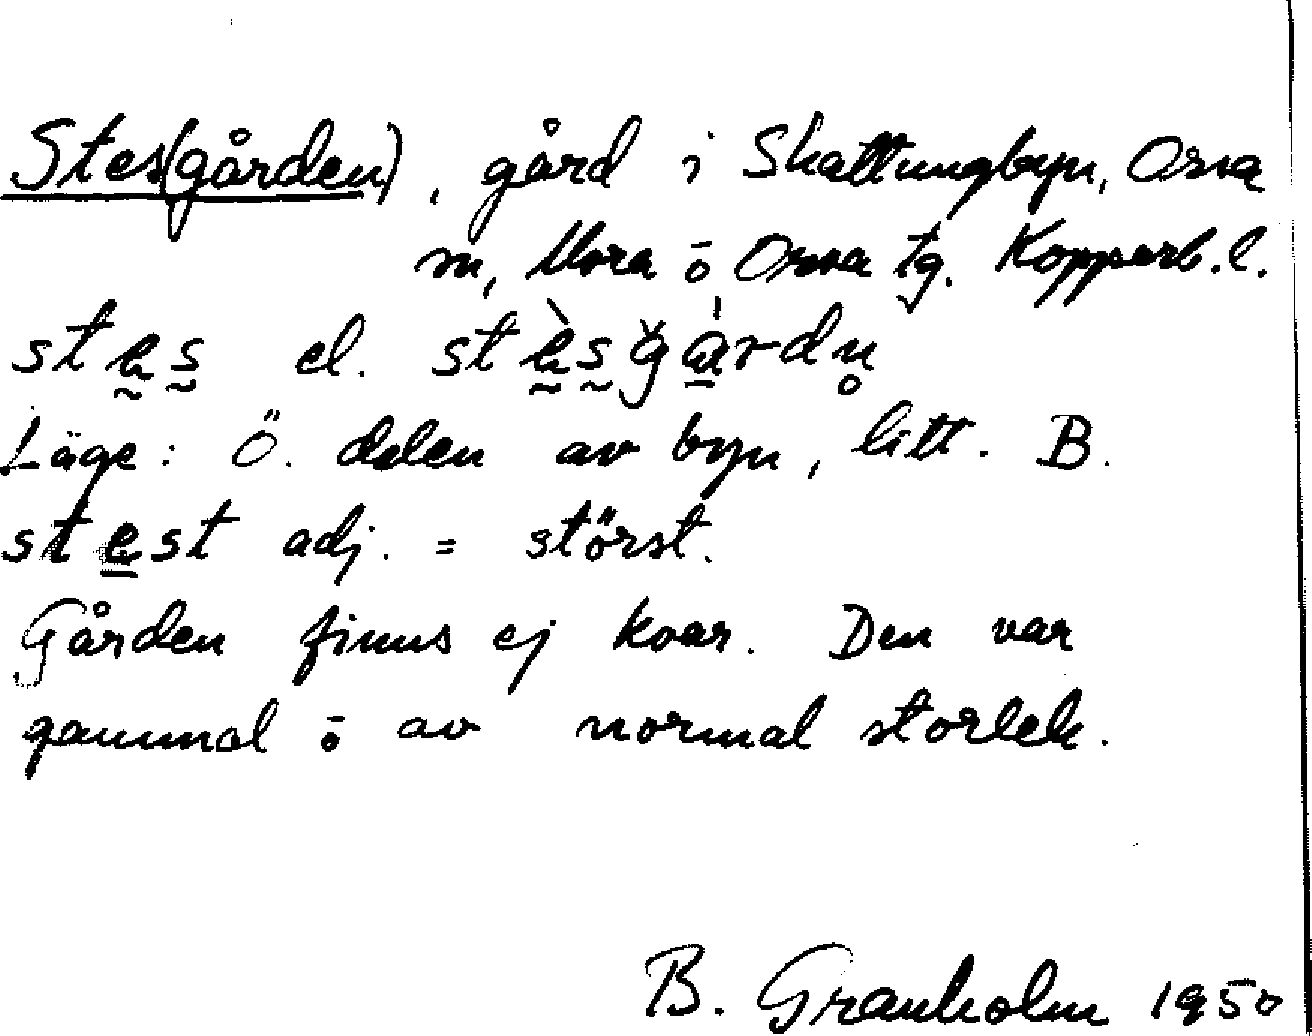 Stes(gården), gård i Skattungbyn, Orsa
sn, Mora ō Orsa tg. Kopparb. l.
stes el. stèsgárdn̥
Läge: Ö. delen av byn, litt. B.
stest adj. = störst.
Gården finns ej kvar. Den var
gammal ō av normal storlek.
B. Granholm 1950